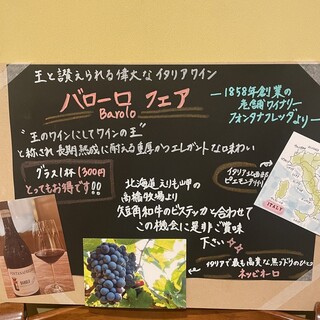 王と讃えられる偉大なイタリアワイン
バローロ フェア
Barolo
1858年創業の
老舗ワイナリー
フォンタナフレッダより
"王のワインにしてワインの王"
と称され長期熟成に耐える重厚かつエレガントな味わい
グラス1杯 1300円
とってもお得です!!
イタリア北西部
ピエモンテ州
北海道えりも岬の
高橋牧場より
短角和牛のビステッカと合わせて
この機会に是非ご賞味
下さい
ITALY
イタリアで最も高貴な黒ブドウのひとつ
ネッビオーロ